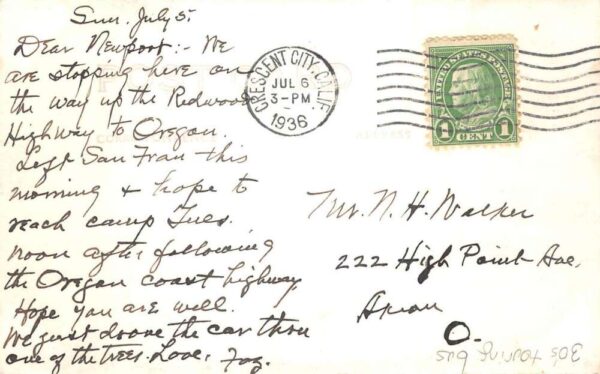 Sun. July 5.
Dear Newport:- We
are stopping here on
the way up the Redwood
Highway to Oregon.
Left San Fran this
morning & hope to
reach camp Tues.
noon after following
the Oregon coast highway.
Hope you are well.
We just drove the car thru
one of the trees. Love,
CRESCENT CITY, CALIF.
JUL 6
3-PM
1936
UNITED STATES POSTAGE
1 CENT 1
Mr. N. H. Walker
222 High Point Ave.
Akron
O.
30s touring bus